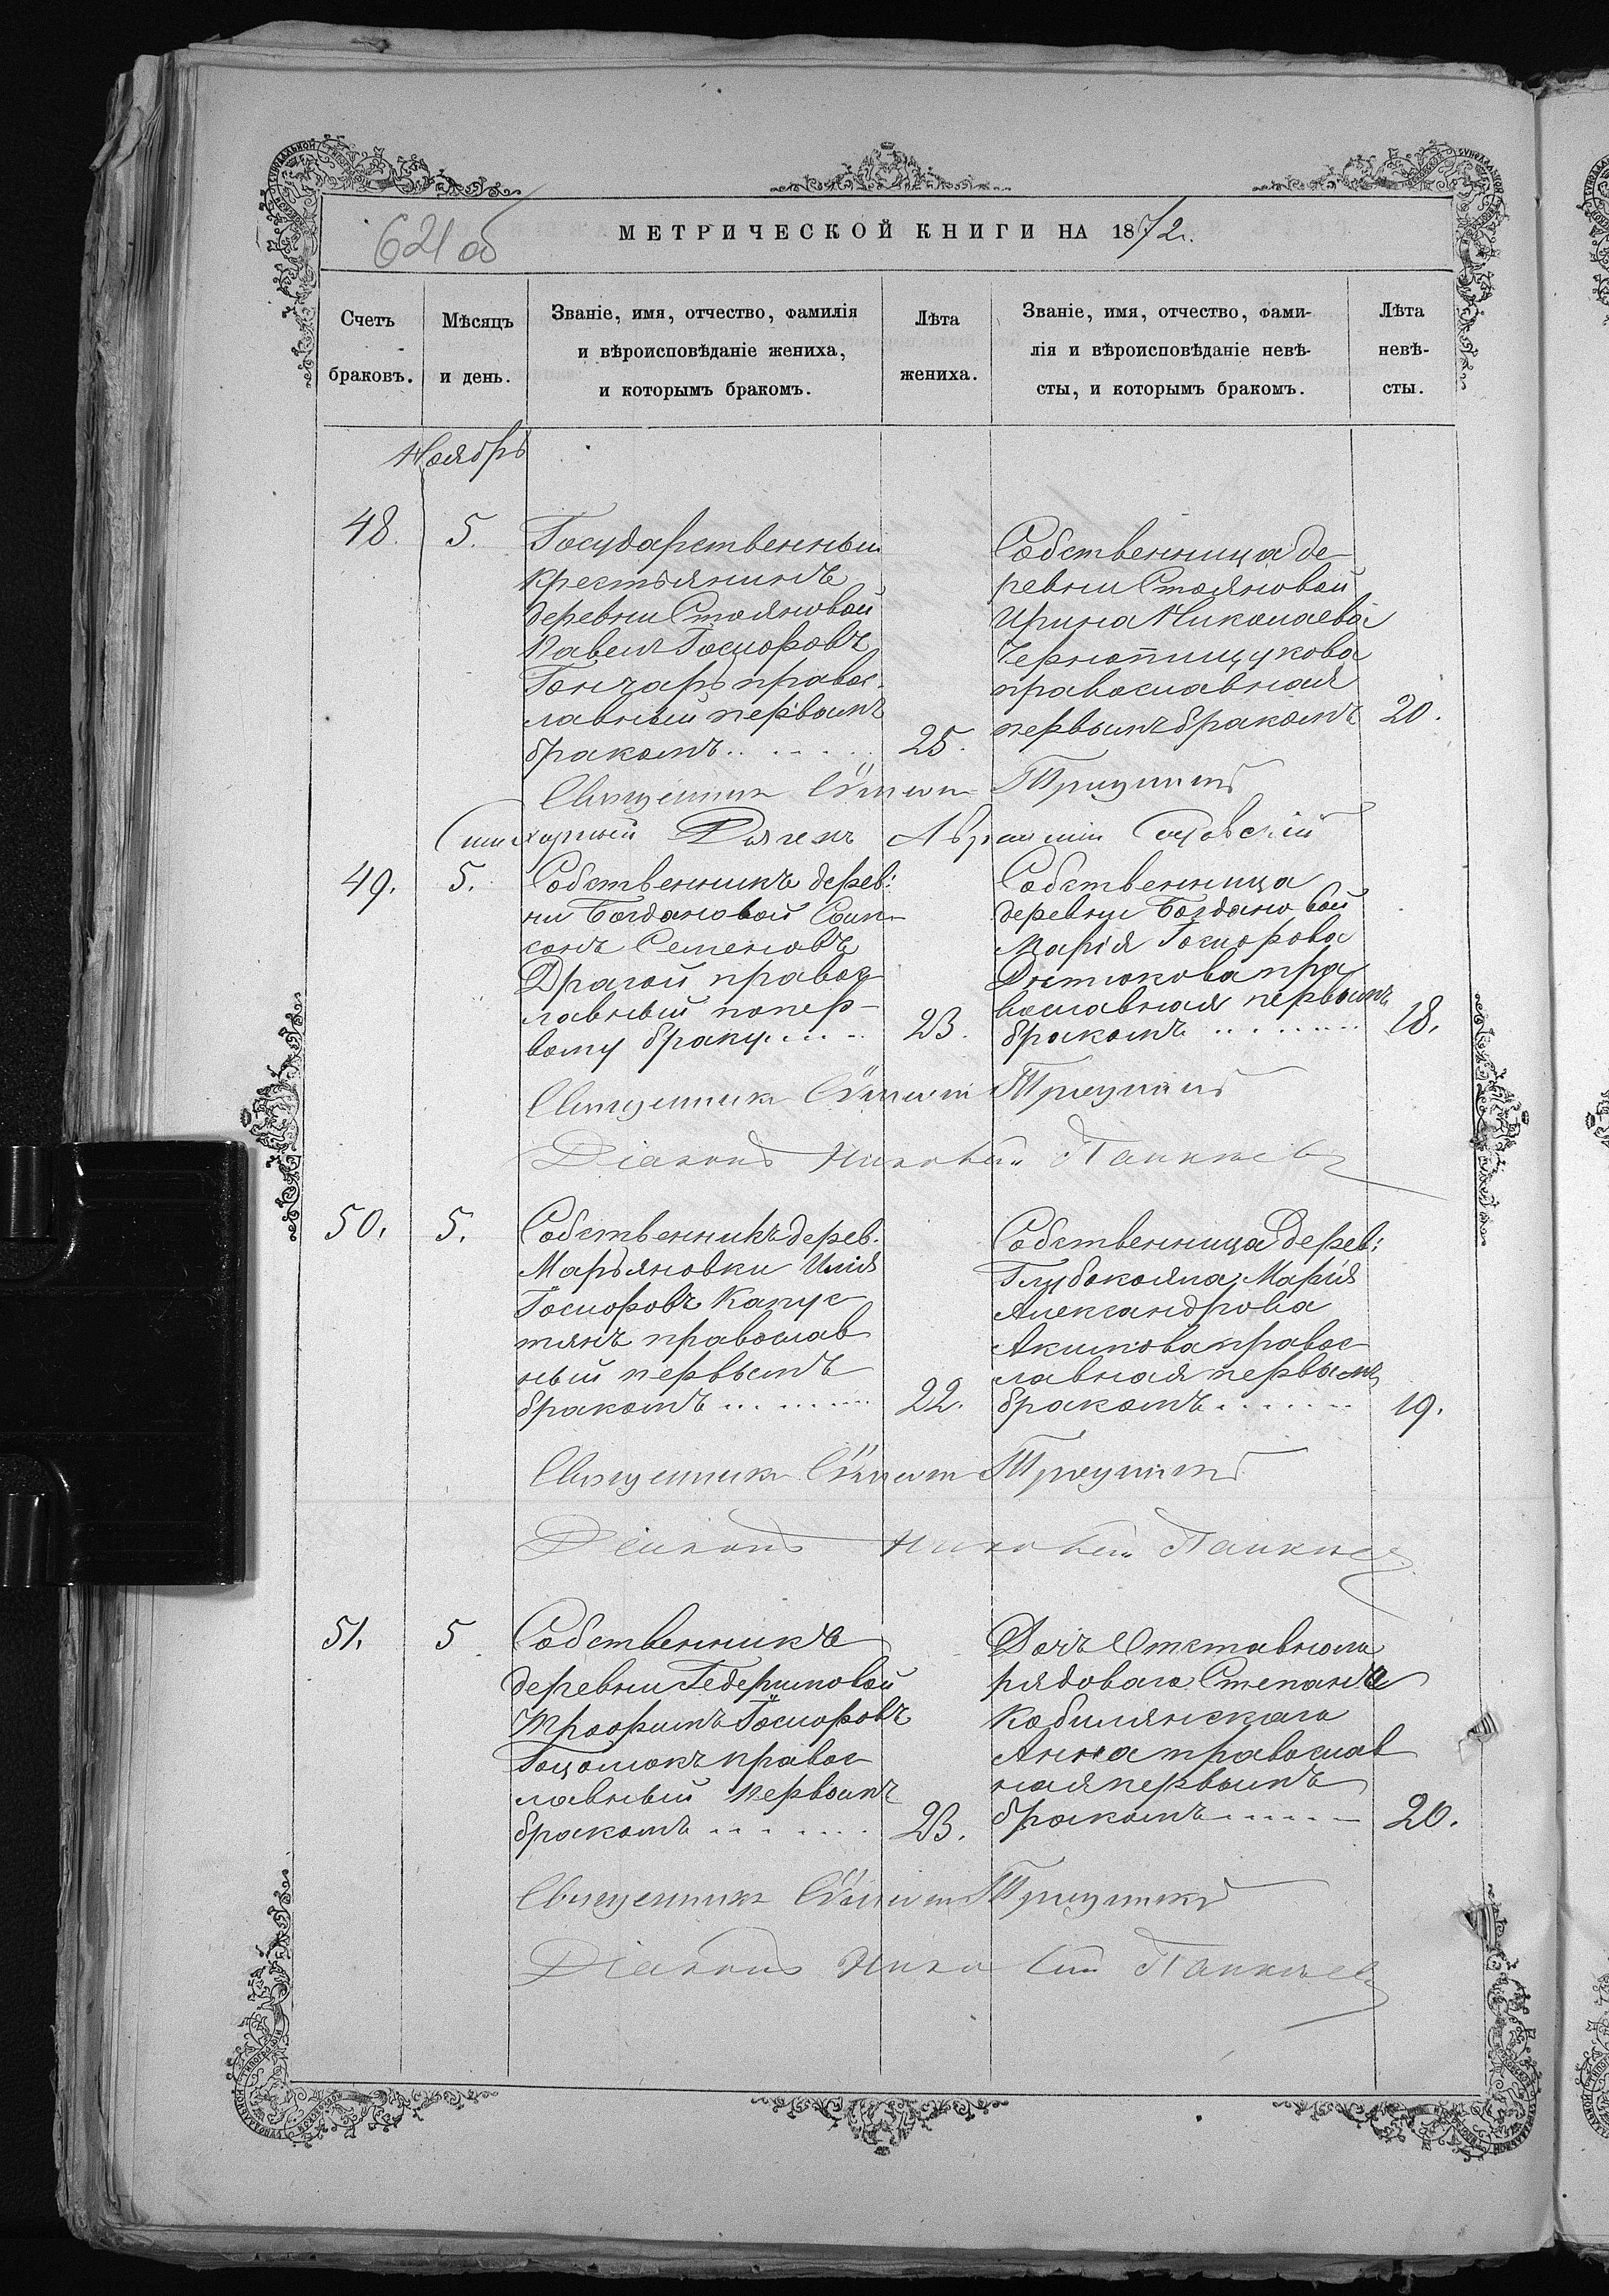 621 об
МЕТРИЧЕСКОЙ КНИГИ НА 1872.
Счетъ
браковъ.
Мѣсяцъ
и день.
Званіе, имя, отчество, фамилія
и вѣроисповѣданіе жениха,
и которымъ бракомъ.
Лѣта
жениха.
Званіе, имя, отчество, фами-
лія и вѣроисповѣданіе невѣ-
сты, и которымъ бракомъ.
Лѣта
невѣ-
сты.
Ноябрь
48.
5.
Государственный
крестьянинъ
деревни Стояновой
Павелъ
Гончаръ правос-
лавный первымъ
бракомъ
25.
Собственница де-
ревни Стояновой
Ирина Николаева
православная
первымъ бракомъ
20.
Священникъ
49.
5.
Собственникъ дерев:
ни Богдановой Сам-
сонъ Семеновъ
Драгой правос-
лавный попер-
вому браку
23.
Собственница
деревни Богдановой
Марія
пра
вославная первымъ
бракомъ
18.
Священникъ
Діаконъ
50.
5.
Собственникъ дерев.
Марьяновки Илія
Капус
тянъ православ
ный первымъ
бракомъ
22.
Собственница дерев:
Глубокояра Марія
Александрова
Акимова правос
лавная первымъ
бракомъ
19.
Священникъ
Діаконъ
51.
5
Собственникъ
деревни Гедеримовой
Трофимъ
правос
лавный первымъ
бракомъ
23.
Дочь Отставнаго
рядоваго Степана
Кобилянскаго
Анна православ
ная первымъ
бракомъ
20.
Священникъ
Діаконъ